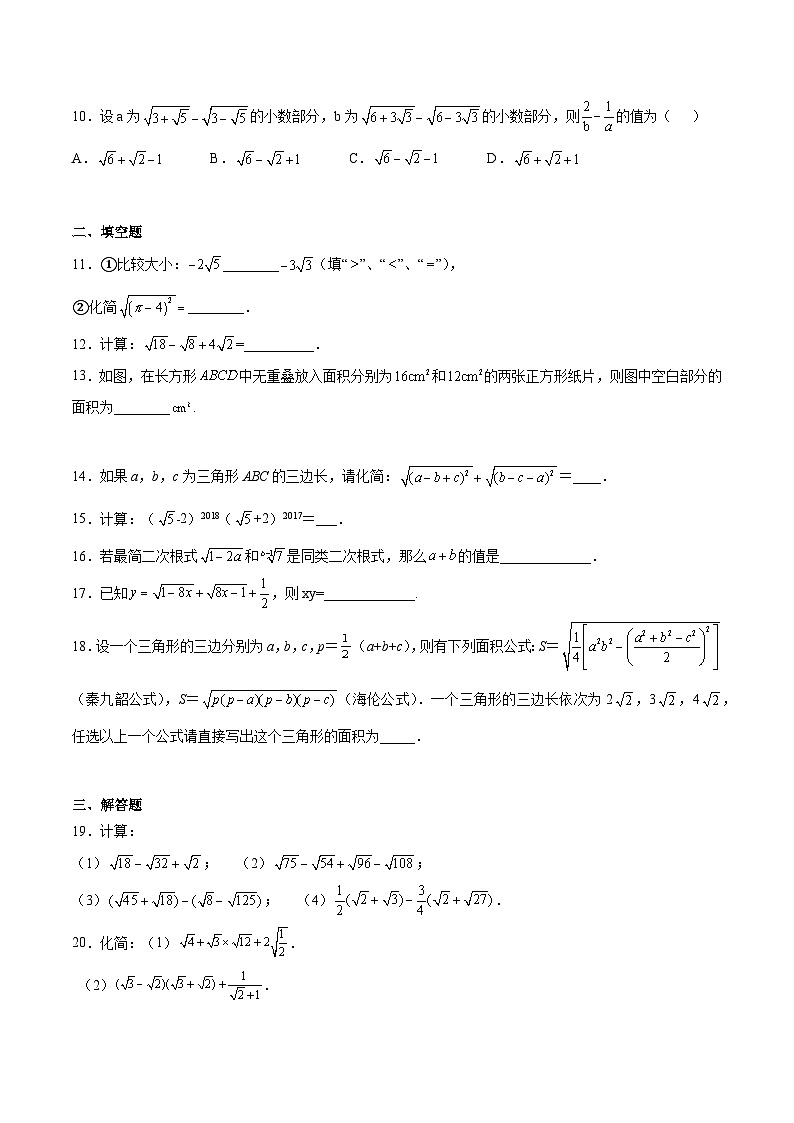 10.设a为√(3+√5)-√(3-√5)的小数部分,b为√(6+3√3)-√(6-3√3)的小数部分,则2/b-1/a的值为( )
A.√6+√2-1 B.√6-√2+1 C.√6-√2-1 D.√6+√2+1
二、填空题
11.①比较大小:-2√5________-3√3(填“>”、“<”、“=”),
②化简√((π-4)²)=________.
12.计算:√18-√8+4√2=__________.
13.如图,在长方形ABCD中无重叠放入面积分别为16cm²和12cm²的两张正方形纸片,则图中空白部分的
面积为________cm².
14.如果a,b,c为三角形ABC的三边长,请化简:√((a-b+c)²)+√((b-c-a)²)=____.
15.计算:(√5-2)²⁰¹⁸(√5+2)²⁰¹⁷=___.
16.若最简二次根式√(1-2a)和 是同类二次根式,那么a+b的值是_____________.
17.已知y=√(1-8x)+√(8x-1)+1/2,则xy=_____________.
18.设一个三角形的三边分别为a,b,c,p=1/2(a+b+c),则有下列面积公式:S=√(1/4[a²b²-((a²+b²-c²)/2)²])
(秦九韶公式),S=√(p(p-a)(p-b)(p-c))(海伦公式).一个三角形的三边长依次为2√2,3√2,4√2,
任选以上一个公式请直接写出这个三角形的面积为_____.
三、解答题
19.计算:
(1)√18-√32+√2; (2)√75-√54+√96-√108;
(3)(√45+√18)-(√8-√125); (4)1/2(√2+√3)-3/4(√2+√27).
20.化简:(1)√4+√3×√12+2√(1/2).
(2)(√3-√2)(√3+√2)+1/(√2+1).